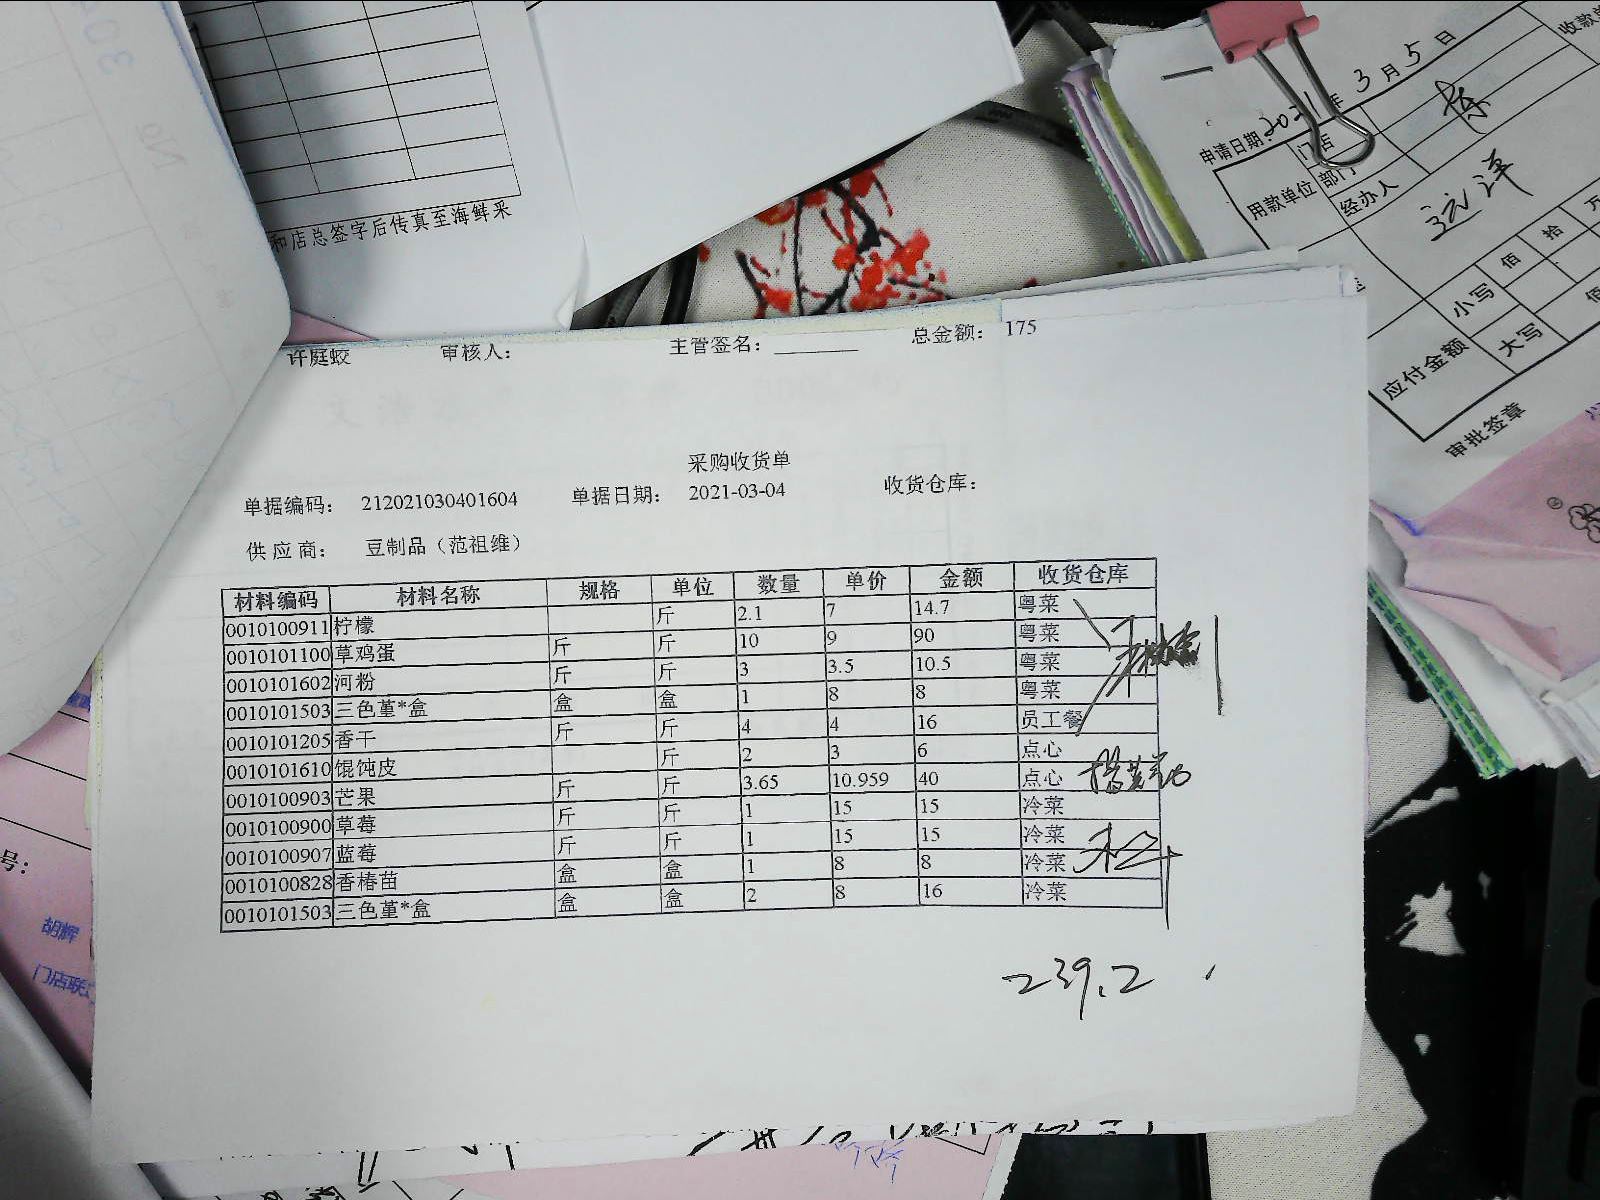 和店总签字后传真至海鲜采
申请日期 2021年3月5日
收款单
用款单位
门店
部门
经办人
远洋
佰 拾 万
小写
应付金额
大写
佰
审批签章
许庭蛟 审核人： 主管签名： 总金额： 175
采购收货单
单据编码： 212021030401604 单据日期： 2021-03-04 收货仓库：
供应商： 豆制品（范祖维）
材料编码 材料名称 规格 单位 数量 单价 金额 收货仓库
0010100911 柠檬 斤 2.1 7 14.7 粤菜
0010101100 草鸡蛋 斤 斤 10 9 90 粤菜
0010101602 河粉 斤 斤 3 3.5 10.5 粤菜
0010101503 三色堇*盒 盒 盒 1 8 8 粤菜
0010101205 香干 斤 斤 4 4 16 员工餐
0010101610 馄饨皮 斤 2 3 6 点心
0010100903 芒果 斤 斤 3.65 10.959 40 点心
0010100900 草莓 斤 斤 1 15 15 冷菜
0010100907 蓝莓 斤 斤 1 15 15 冷菜
0010100828 香椿苗 盒 盒 1 8 8 冷菜
0010101503 三色堇*盒 盒 盒 2 8 16 冷菜
239.2
号：
胡辉
门店联